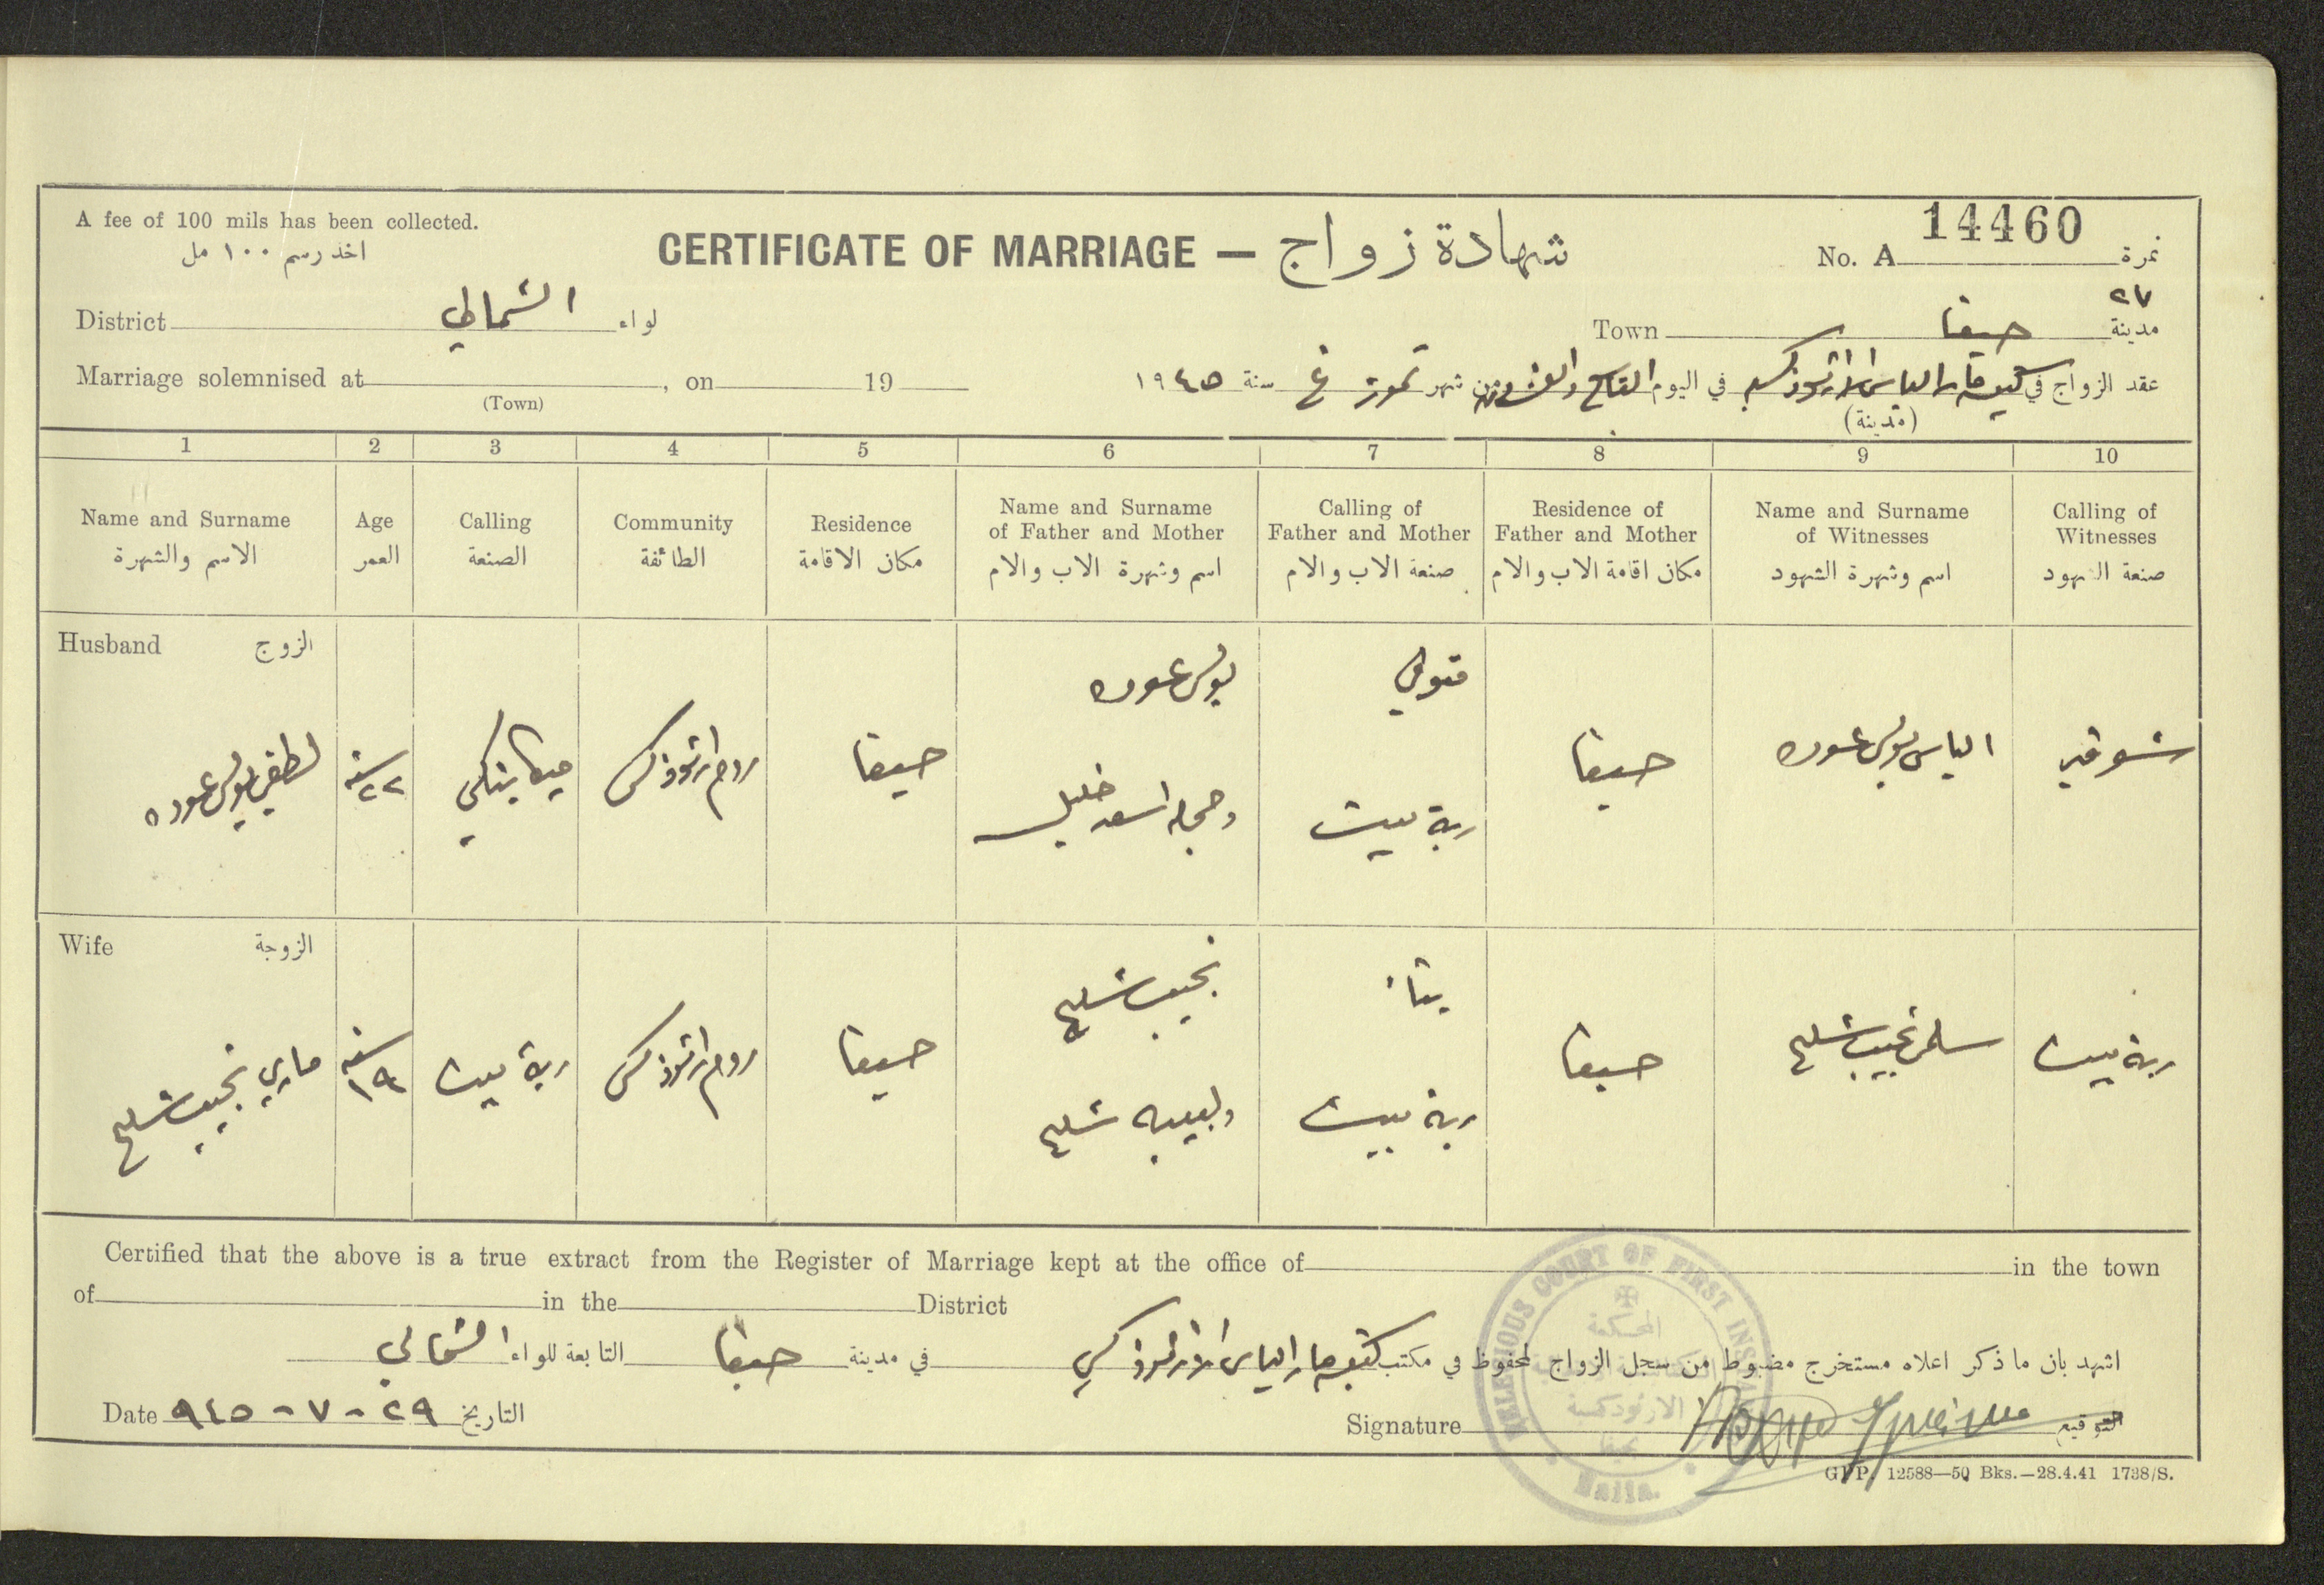 A fee of 100 mils has been collected.
اخذ رسم ١٠٠ مل
CERTIFICATE OF MARRIAGE — شهادة زواج
No. A 14460 نمرة
٢٧
District الشمالي لواء
Town حيفا مدينة
Marriage solemnised at , on 19
(Town)
عقد الزواج في كنيسة مار الياس الارثوذكسية في اليوم التاسع والعشرون شهر تموز غ سنة ١٩٤٥
(مدينة)
1 2 3 4 5 6 7 8 9 10
Name and Surname
الاسم والشهرة
Age
العمر
Calling
الصنعة
Community
الطائفة
Residence
مكان الاقامة
Name and Surname
of Father and Mother
اسم وشهرة الاب والام
Calling of
Father and Mother
صنعة الاب والام
Residence of
Father and Mother
مكان اقامة الاب والام
Name and Surname
of Witnesses
اسم وشهرة الشهود
Calling of
Witnesses
صنعة الشهود
Husband الزوج
لطفي بولس عوده
٢٢ سنه
ميكانيكي
روم ارثوذكس
حيفا
بولس عوده
اسعد خليل
متوفي
ربة بيت
حيفا
الياس بولس عوده
Wife الزوجة
ماري نجيب شليح
١٩ سنه
ربة بيت
روم ارثوذكس
حيفا
نجيب شليح
ولبيبه شليح
بناء
ربة بيت
حيفا
نجيب شليح
ربة بيت
Certified that the above is a true extract from the Register of Marriage kept at the office of in the town
of in the District
اشهد بان ما ذكر اعلاه مستخرج مضبوط من سجل الزواج المحفوظ في مكتب كنيسة مار الياس الارثوذكسي في مدينة حيفا التابعة للواء الشمالي
Date ٢٩ - ٧ - ٩٤٥ التاريخ
Signature التوقيع
RELIGIOUS COURT OF FIRST INSTANCE
المحكمة
الارثوذكسية
بحيفا
Haifa.
GPP. 12588—50 Bks.—28.4.41 1738/S.